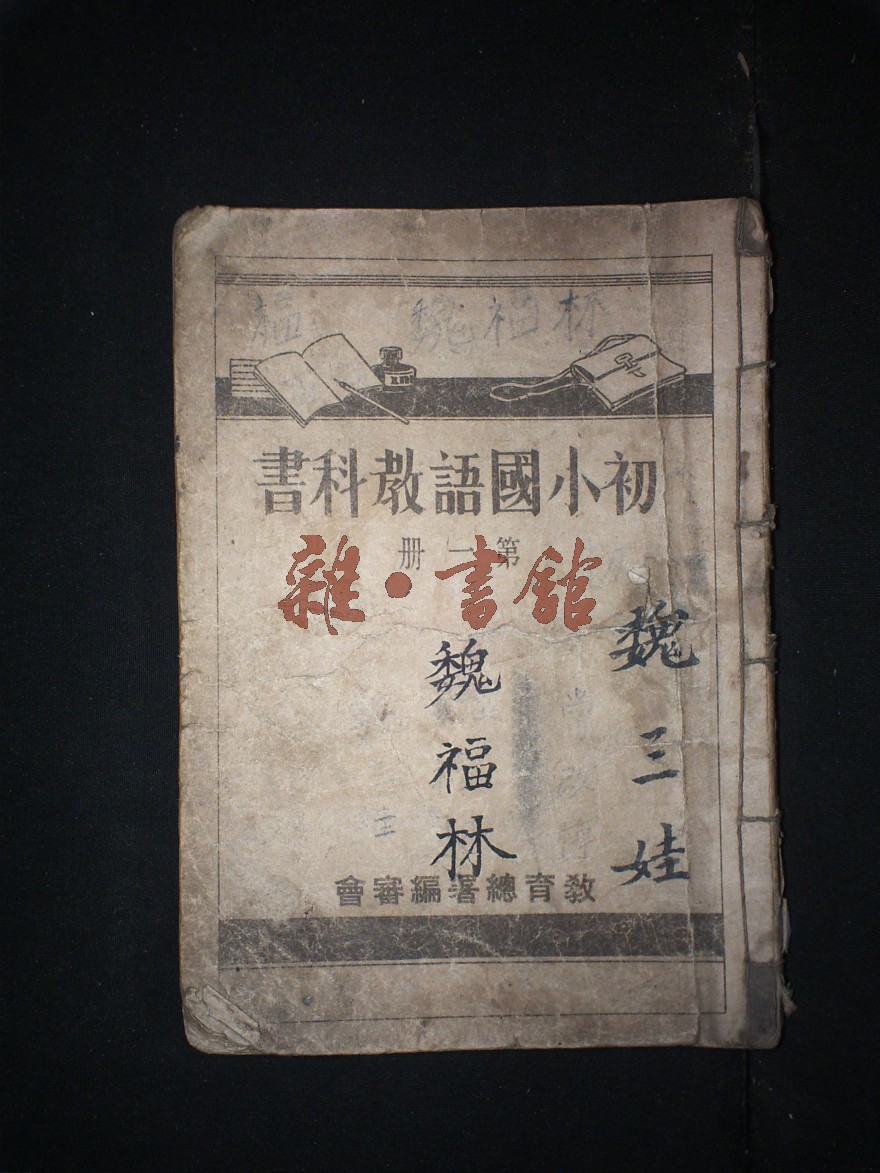 魏福林
初小國語教科書
第一册
雜·書館
魏三娃
魏福林
教育總署編審會